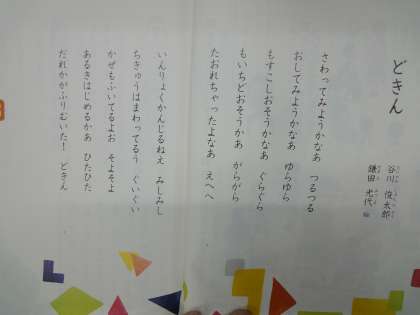 どきん
谷川 俊太郎
鎌田 光代 絵
さわってみようかなあ つるつる
おしてみようかなあ ゆらゆら
もすこしおそうかなあ ぐらぐら
もいちどおそうかあ がらがら
たおれちゃったよなあ えへへ
いんりょくかんじるねえ みしみし
ちきゅうはまわってるう ぐいぐい
かぜもふいてるよお そよそよ
あるきはじめるかあ ひたひた
だれかがふりむいた！ どきん